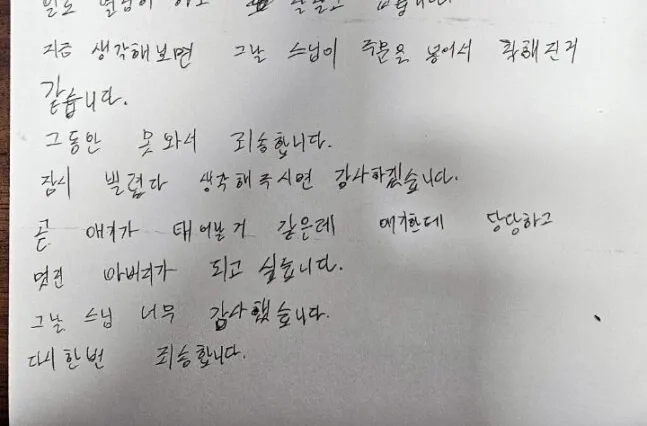 지금 생각해보면 그날 스님이 주문을 넣어서 착해진거
같습니다.
그동안 못와서 죄송합니다.
잠시 빌렸다 생각해주시면 감사하겠습니다.
곧 애기가 태어날거 같은데 애기한데 당당하고
멋진 아버지가 되고 싶습니다.
그날 스님 너무 감사했습니다.
다시한번 죄송합니다.